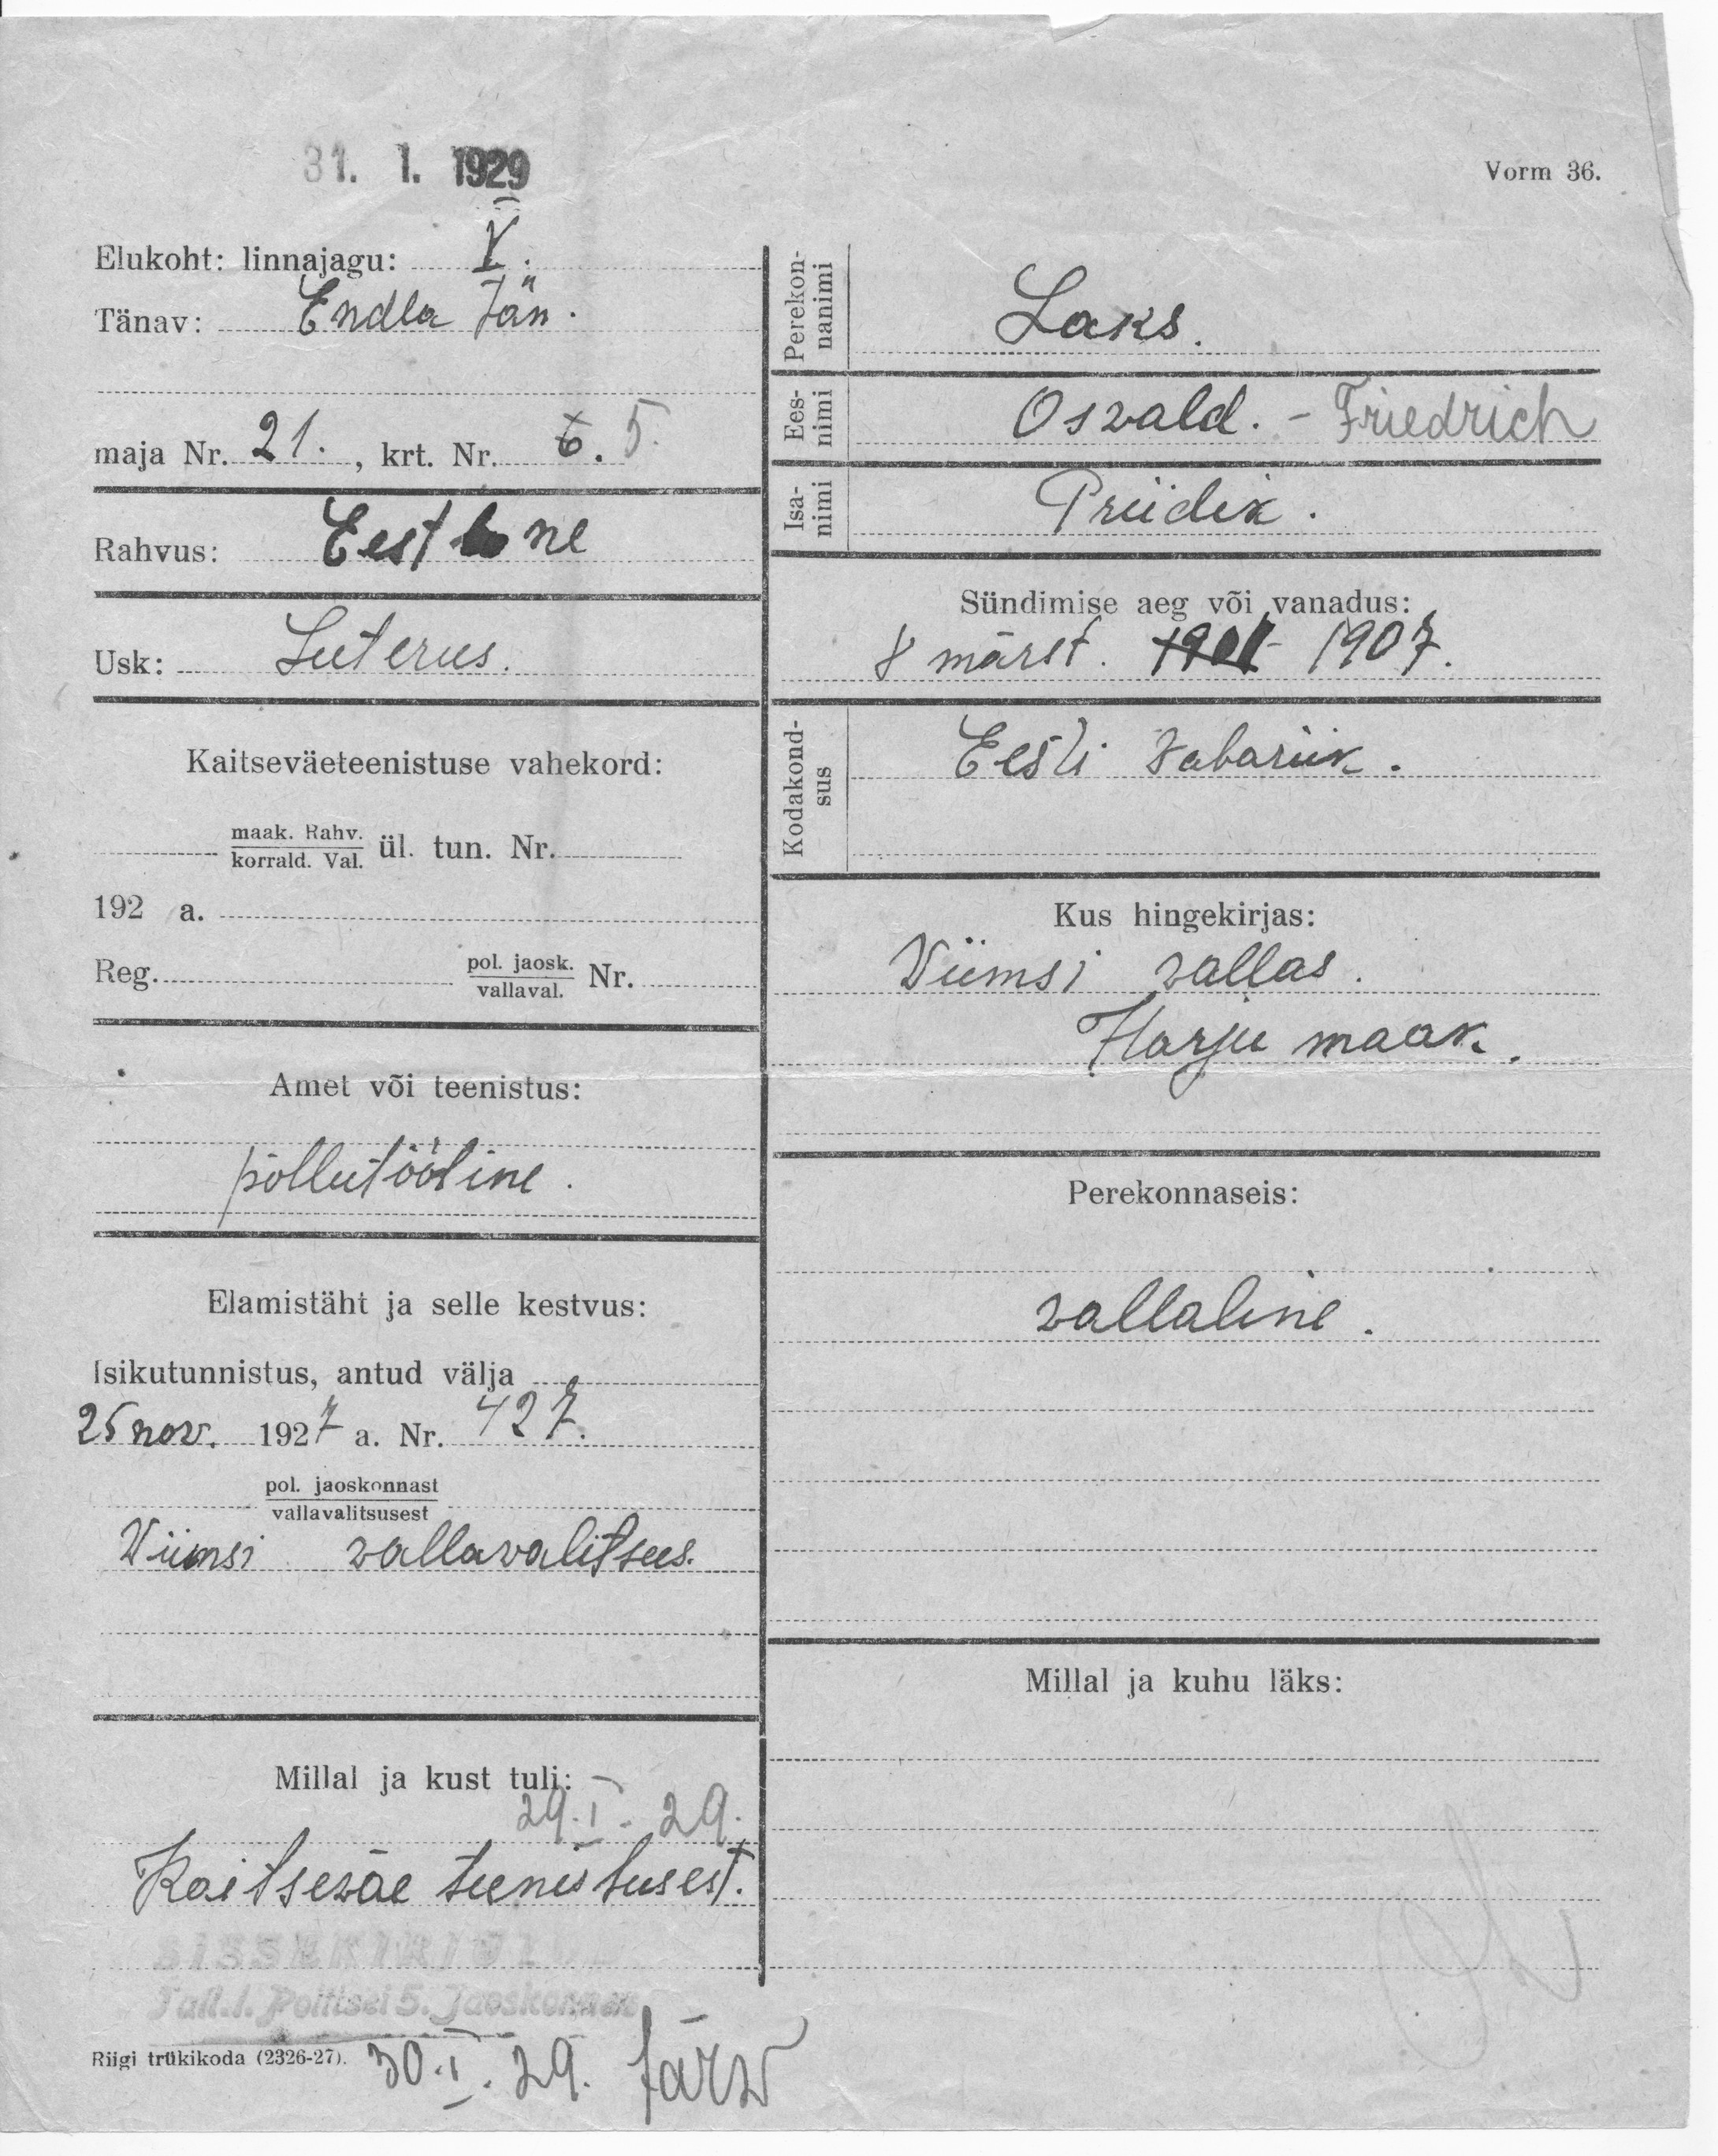 31. 1. 1929
Vorm 36.
Elukoht: linnajagu: V.
Tänav: Endla tän.
maja Nr. 21. , krt. Nr. 6. 5.
Rahvus: Eestlane
Usk: Luterus.
Kaitseväeteenistuse vahekord:
maak. Rahv.
korrald. Val. ül. tun. Nr.
192 a.
Reg. pol. jaosk.
vallaval. Nr.
Amet või teenistus:
põllutööline.
Elamistäht ja selle kestvus:
Isikutunnistus, antud välja
25 nov. 1927 a. Nr. 427.
pol. jaoskonnast
vallavalitsusest
Wiimsi vallavalitsus.
Millal ja kust tuli:
29.I.29.
Kaitseväe teenistusest.
SISSEKIRJUTUD
Tall.l. Politsei 5. Jaoskonnas
Riigi trükikoda (2326-27). 30.I.29. Järw
Perekon-
nanimi Laks.
Ees-
nimi Osvald. - Friedrich
Isa-
nimi Priidik.
Sündimise aeg või vanadus:
8 märst. 1907.
Kodakond-
sus Eesti Vabariik.
Kus hingekirjas:
Wiimsi vallas.
Harju maak.
Perekonnaseis:
vallaline.
Millal ja kuhu läks: